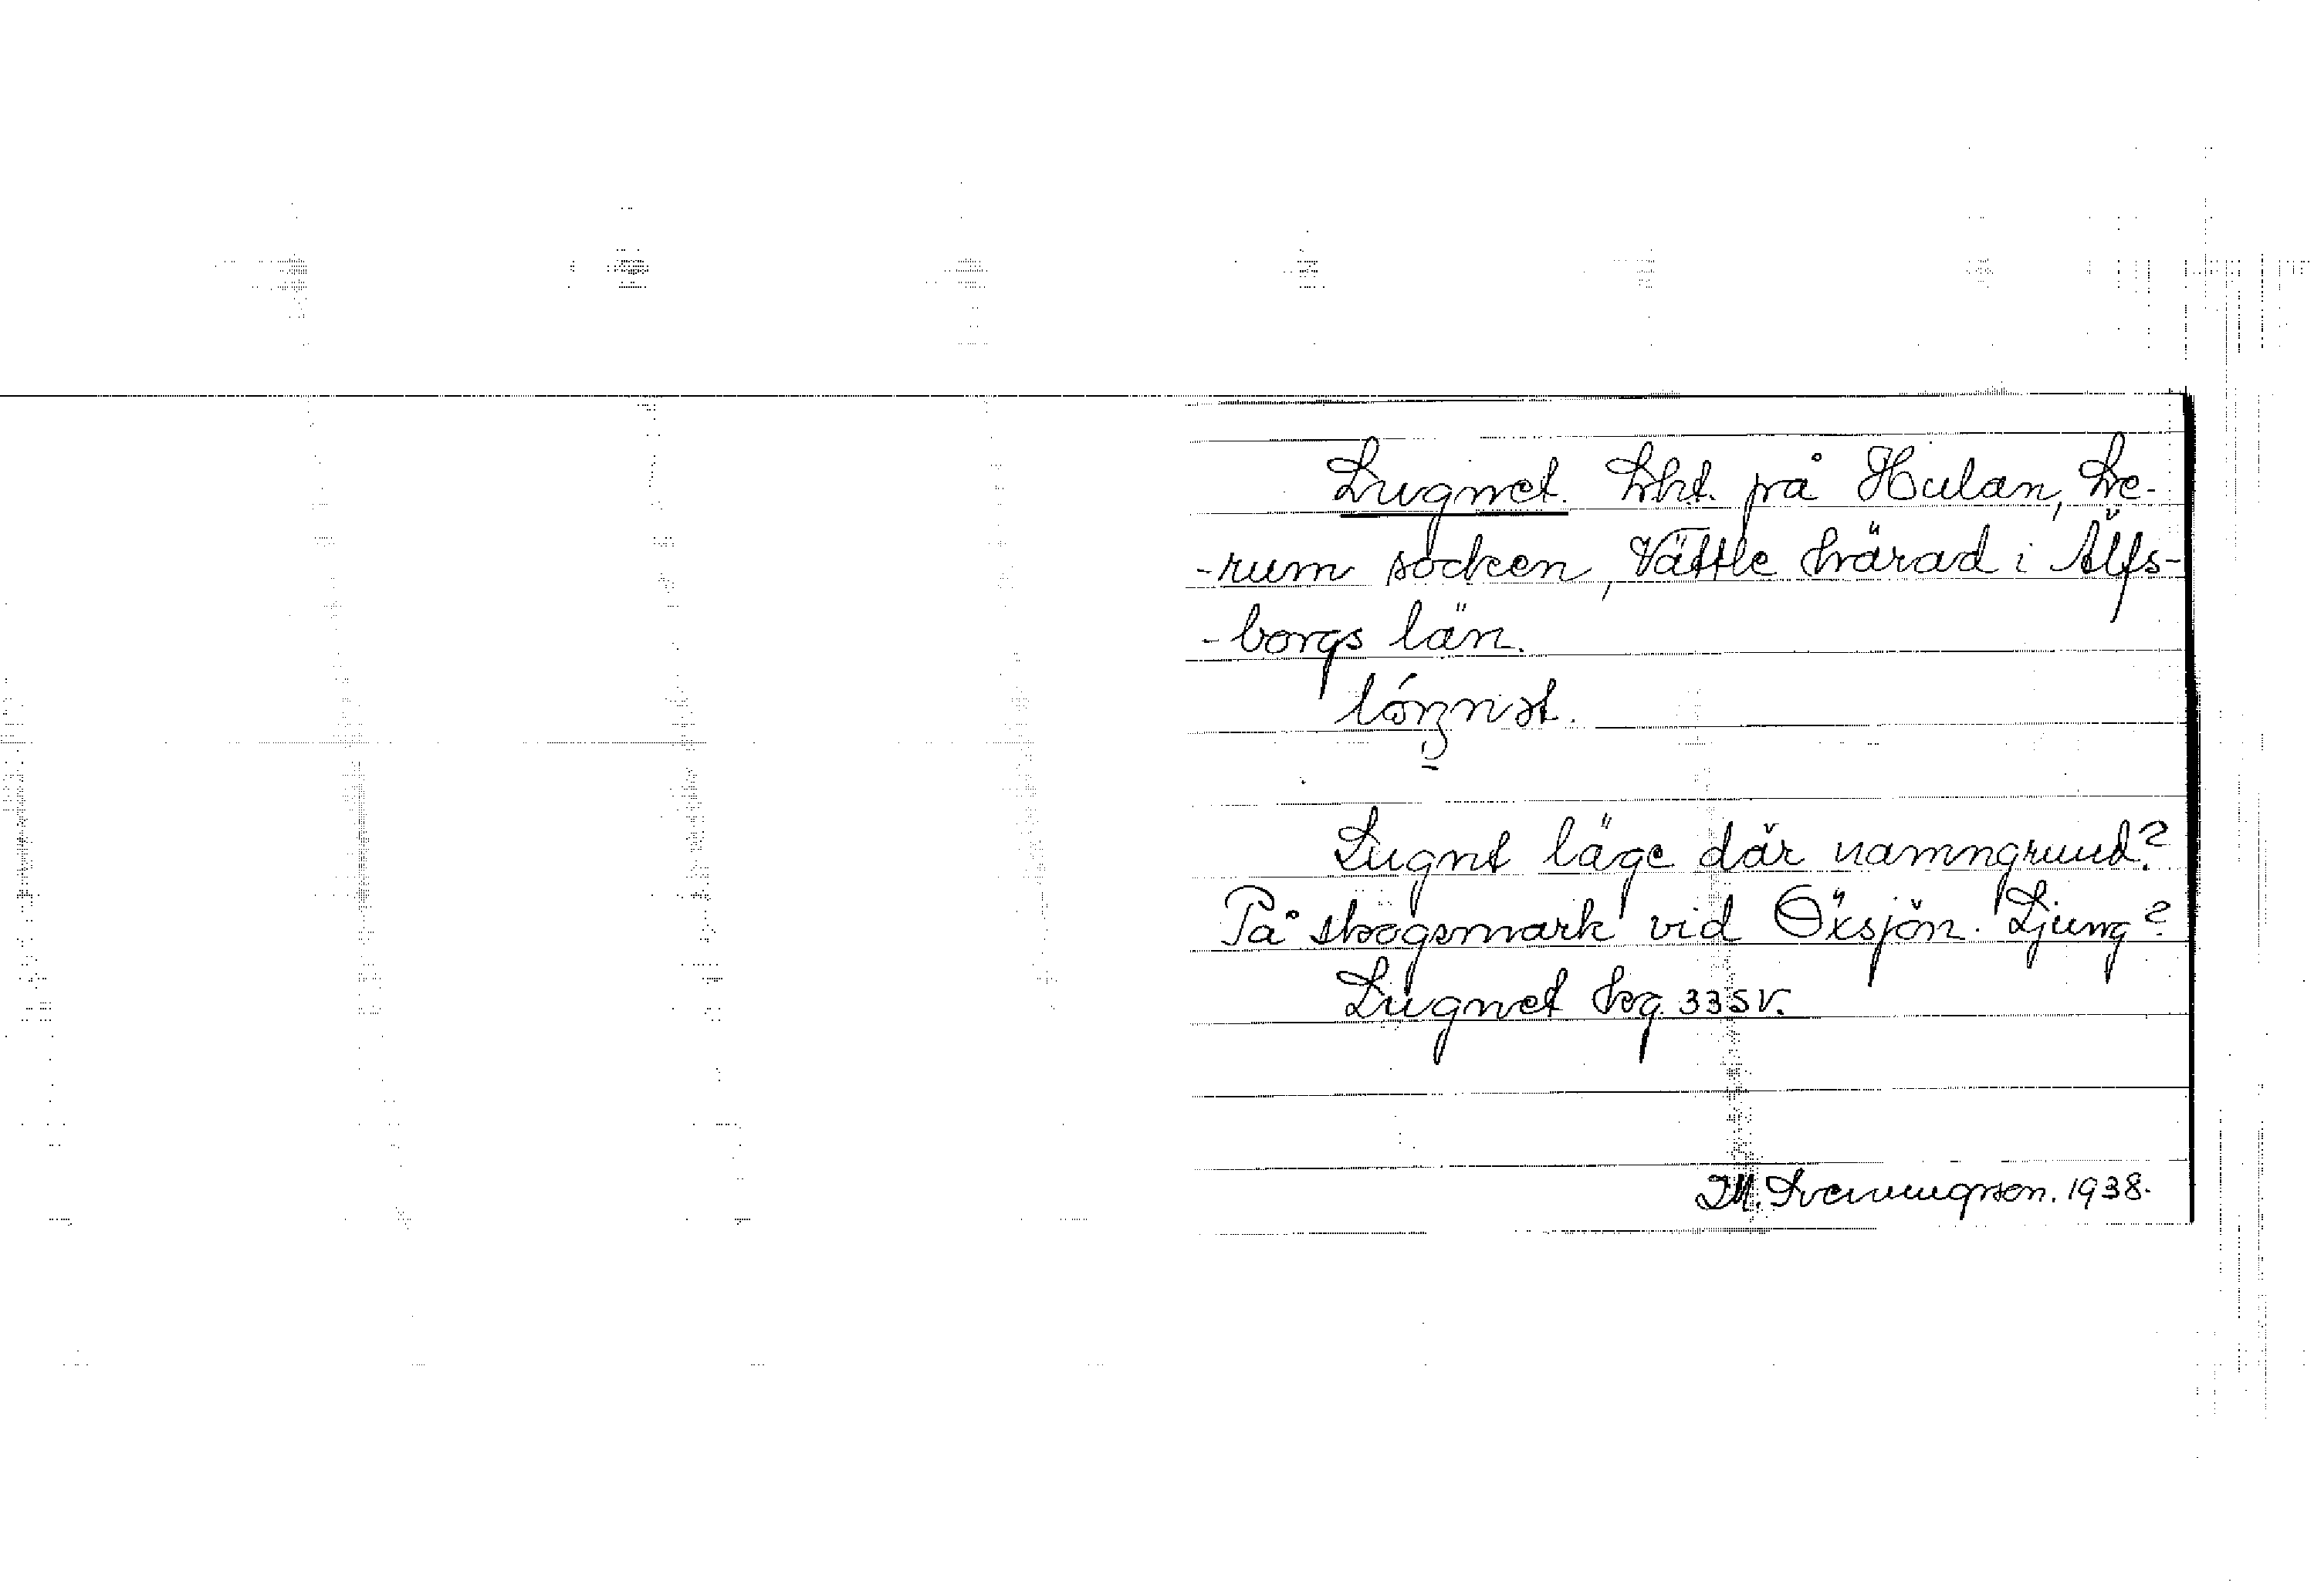 Lugnet. Lht. på Hulan, Le-
-rum socken, Vättle härad i Älfs-
-borgs län.
Lugnt läge där namngrund?
På skogsmark vid Öxsjön. Ljung?
Lugnet hsg. 33SV.
M. Svenungson. 1938.